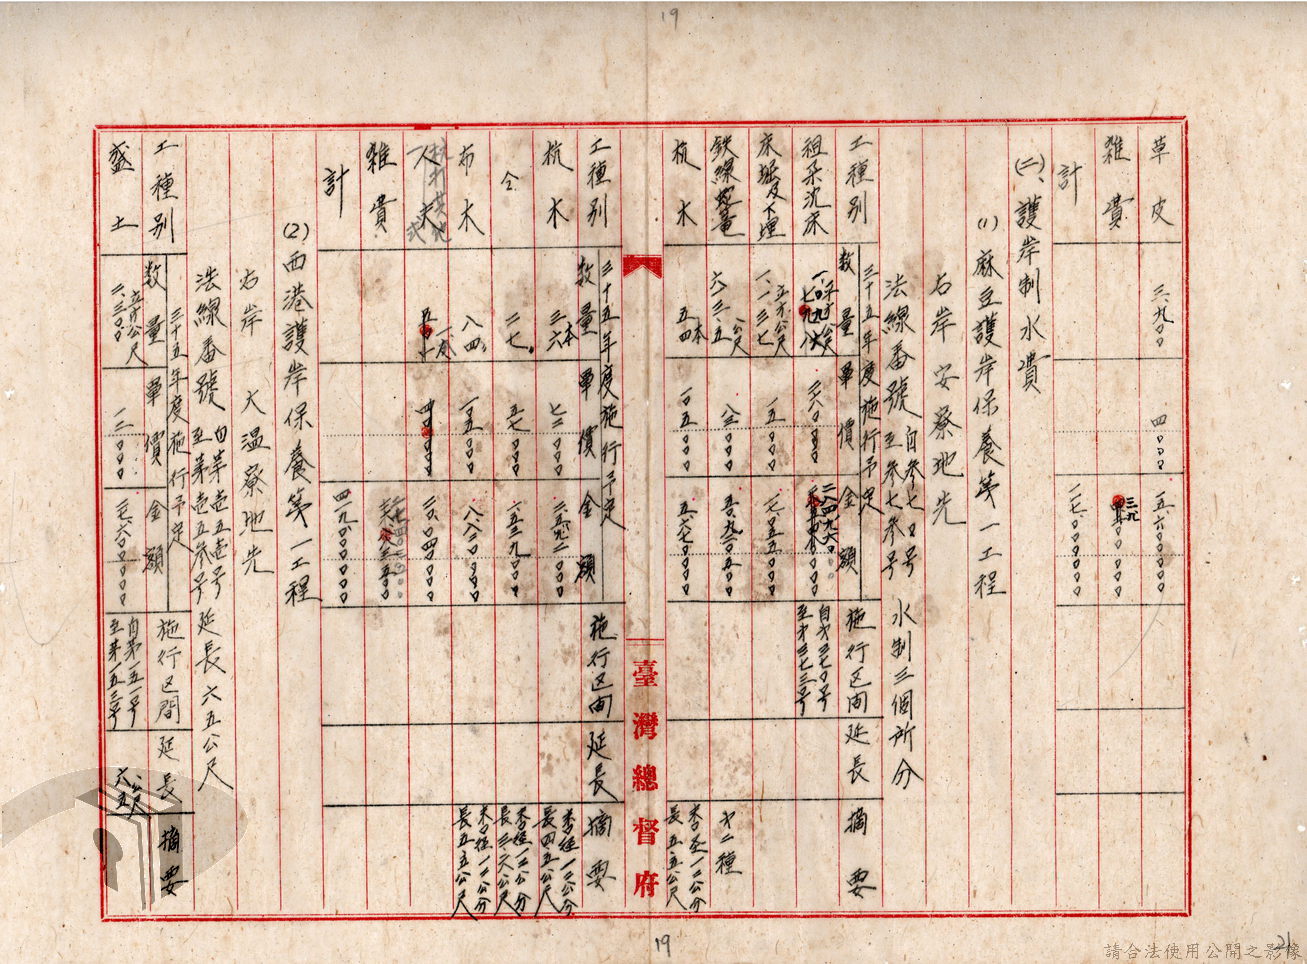 19
草皮 三、九〇〇 四〇〇〇 一五、六〇〇〇〇〇
雑費 三九
計 一七、〇〇〇〇〇〇
(二)、護岸制水費
(1) 麻豆護岸保養第一工程
右岸 安寮地先
法線番號 自参七〇号 至参七参号 水制三個所分
工種別 三十五年度施行予定 数量 單價 金額 施行区间 延長 摘要
粗朶沈床 二六〇〇〇 自才三七〇号 至才三七三号
床堀及下埋 立方公尺 一、一三七 一五〇〇〇 一七、〇五五〇〇〇
鉄線蛇篭 公尺 六一三、五 八三〇〇〇 五〇、九二〇五〇〇 才二種
杭木 本 五四 一〇五〇〇〇 五、六七〇〇〇〇 杏径一二公分 長五、五公尺
臺灣總督府
工種別 三十五年度施行予定 数量 單價 金額 施行区间 延長 摘要
杭木 本 三六 七二〇〇〇 二、五九二〇〇〇 杏径一二公分 長四、五公尺
仝 二七 五七〇〇〇 一、五三九〇〇〇 杏径一二公分 長三、六公尺
布木 八四 一〇五〇〇〇 八、八二〇〇〇〇 杏径一二公分 長五、五公尺
人夫
雑費
計 四一九、〇〇〇〇〇〇
(2) 西港護岸保養第一工程
右岸 大温寮地先
法線番號 自第壱五壱号 至第壱五参号 延長六五公尺
工種別 三十五年度施行予定 数量 單價 金額 施行区間 延長 摘要
盛土 立方公尺 二、三〇〇 一二〇〇〇 二七、六〇〇〇〇〇 自第一五一号 至第一五三号 公尺 六五
19
21
請合法使用公開之影像